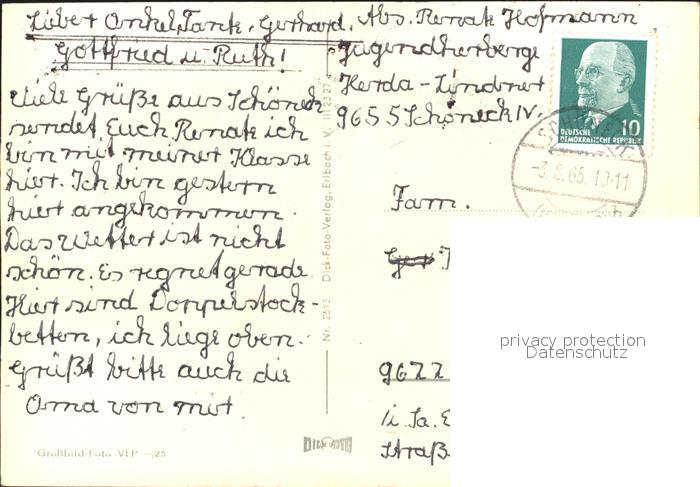 Lieber Onkel, Tante, Gerhard,
Gottfried u. Ruth!
Viele Grüße aus Schöneck
sendet Euch Renate ich
bin mit meiner Klasse
hier. Ich bin gestern
hier angekommen.
Das Wetter ist nicht
schön. Es regnet gerade.
Hier sind Doppelstock-
betten, ich liege oben.
Grüßt bitte auch die
Oma von mir.
Großbild-Foto VEP —,25
Nr. 2513 Dick-Foto-Verlag, Erlbach i. V. III 23 27
DICK FOTO
Abs. Renate Hofmann
Jugendherberge
Herda-Lindner
9655 Schöneck IV.
10
DEUTSCHE
DEMOKRATISCHE REPUBLIK
SCHÖNECK
-3.8.65.10-11
Fam.
privacy protection
Datenschutz
9677
i. Sa.
Straß